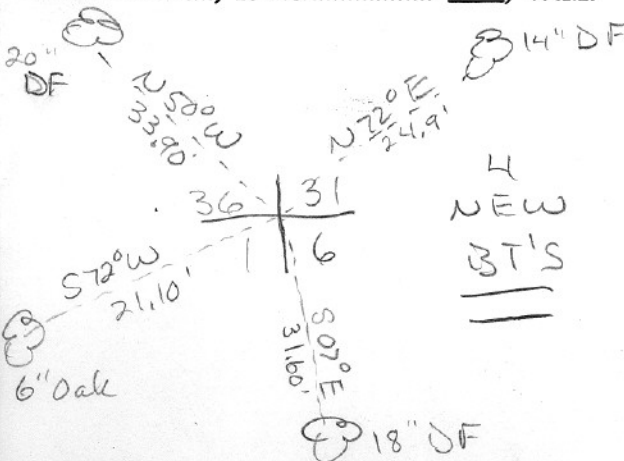 20" DF
N 50° W
33.90'
14" DF
N 72° E
24.9'
36 31
1 6
4
NEW
BT'S
S 72° W
21.10'
6" Oak
S 07° E
31.60'
18" DF